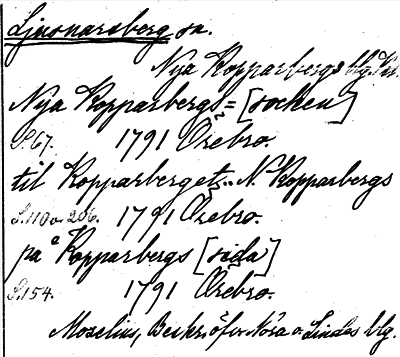 Ljusnarsberg sn.
Nya Kopparbergs blg.
Nya Kopparbergs = [socken]
S. 67. 1791 Örebro.
til Kopparberget... N. Kopparbergs
S. 110 o. 206. 1791 Örebro.
på Kopparbergs [sida]
S. 154. 1791 Örebro.
Mozelius, Beskr. öfver Nora o. Lindes blg.